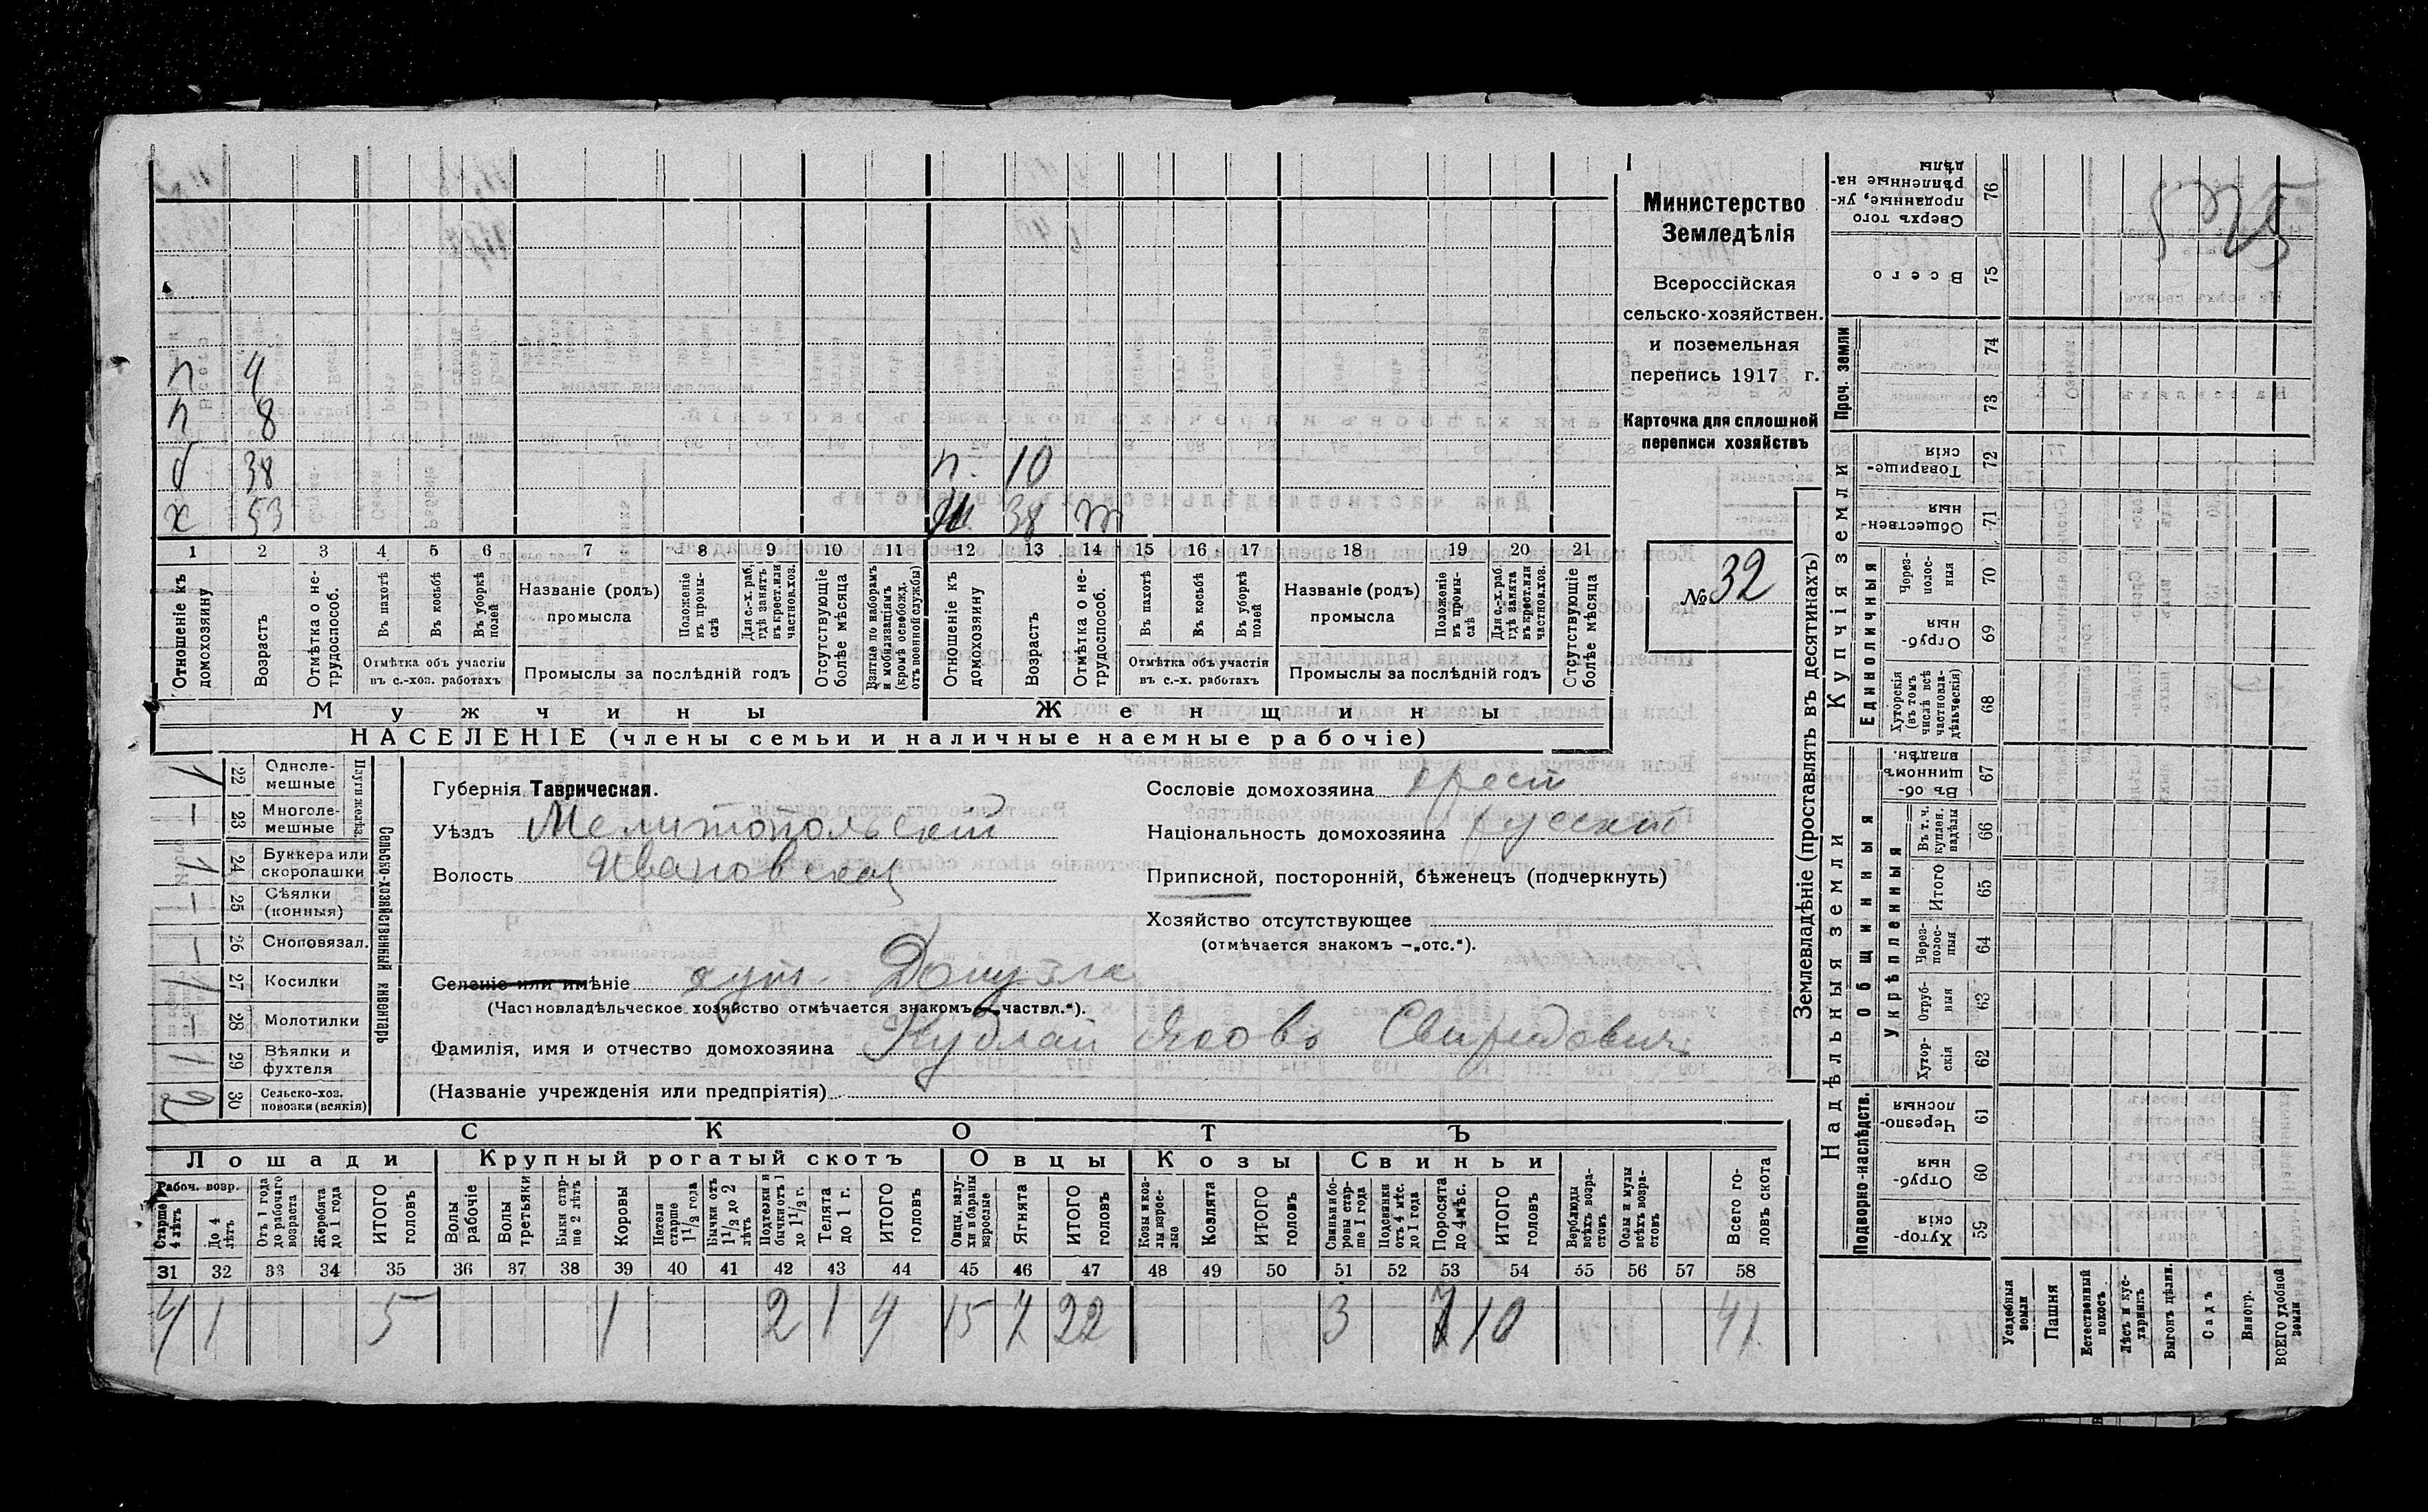 5325
п 4
п 8
б 38 п. 10
х 53 ж. 38 т
1 2 3 4 5 6 7 8 9 10 11 12 13 14 15 16 17 18 19 20 21
Отношеніе къ домохозяину
Возрастъ
Отмѣтка о не-трудоспособ.
Въ пахотѣ
Въ косьбѣ
Въ уборкѣ полей
Отмѣтка объ участіи
въ с.-хоз. работахъ
Названіе (родъ)
промысла
Положеніе въ промы-слѣ
Для с.-х. раб, гдѣ занятъ въ крест. или частнов. хоз.
Промыслы за послѣдній годъ
Отсутствующіе болѣе мѣсяца
Взятые по наборамъ и мобилизаціямъ (кромѣ освобожд. отъ военной службы)
Отношеніе къ домохозяину
Возрастъ
Отмѣтка о не-трудоспособ.
Въ пахотѣ
Въ косьбѣ
Въ уборкѣ полей
Отмѣтка объ участіи
въ с.-х. работахъ
Названіе (родъ)
промысла
Положеніе въ промы-слѣ
Для с.-х. раб. гдѣ занята въ крест. или частнов. хоз.
Промыслы за послѣдній годъ
Отсутствующіе болѣе мѣсяца
Мужчины
Женщины
НАСЕЛЕНІЕ (члены семьи и наличные наемные рабочіе)
Министерство
Земледѣлія
Всероссійская
сельско-хозяйствен.
и поземельная
перепись 1917 г.
Карточка для сплошной
переписи хозяйствъ
№ 32
Сельско-хозяйственный инвентарь
Плуги желѣз.
1 22 Одноле-мешные
— 23 Многоле-мешные
1 24 Буккера или скоропашки
— 25 Сѣялки (конныя)
— 26 Сноповязал.
1 27 Косилки
— 28 Молотилки
1 29 Вѣялки и фухтеля
2 30 Сельско-хоз. повозки (всякія)
Губернія Таврическая.
Уѣздъ Мелитопольскій
Волость Ивановская
Селеніе или имѣніе хут.
(Частновладѣльческое хозяйство отмѣчается знакомъ — „частвл.“).
Фамилія, имя и отчество домохозяина Кублай Яковъ Свиридовичъ
(Названіе учрежденія или предпріятія)
Сословіе домохозяина крест
Національность домохозяина русскій
Приписной, посторонній, бѣженецъ (подчеркнуть)
Хозяйство отсутствующее
(отмѣчается знакомъ —„отс.“).
СКОТЪ
Лошади
Крупный рогатый скотъ
Овцы
Козы
Свиньи
Рабоч. возр.
Старше 4 лѣтъ
До 4 лѣтъ
Отъ 1 года до рабочаго возраста
Жеребята до 1 года
ИТОГО головъ
Волы рабочіе
Волы третьяки
Быки стар-ше 2 лѣтъ
Коровы
Нетели старше 1 1/2 года
Бычки отъ 1 1/2 до 2 лѣтъ
Подтелки и бычки отъ 1 до 1 1/2 г.
Телята до 1 г.
ИТОГО головъ
Овцы, валу-хи и бараны взрослые
Ягнята
ИТОГО головъ
Козы и коз-лы взрос-лые
Козлята
ИТОГО головъ
Свиньи и бо-ровы стар-ше 1 года
Подсвинки отъ 4 мѣс. до 1 года
Поросята до 4 мѣс.
ИТОГО головъ
Верблюды всѣхъ возра-стовъ
Ослы и мулы всѣхъ возра-стовъ
Всего го-ловъ скота
31 32 33 34 35 36 37 38 39 40 41 42 43 44 45 46 47 48 49 50 51 52 53 54 55 56 57 58
4 1 5 1 2 1 4 15 7 22 3 7 10 41
Землевладѣніе (проставлять въ десятинахъ)
Купчія земли
Проч. земли
Единоличныя
Надѣльныя земли
Общинныя
Укрѣпленныя
Подворно-наслѣдств.
Сверхъ того проданные, ук-рѣпленные на-дѣлы 76
Всего 75
74
73
Товарище-скія 72
Обществен-ныя 71
Через-полос-ныя 70
Отруб-ныя 69
Хуторскія (въ томъ числѣ всѣ частновла-дѣльческія) 68
Въ об-щинномъ владѣн. 67
Въ т. ч. куплен. надѣлы 66
Итого 65
Через-полос-ныя 64
Отруб-ныя 63
Хутор-скія 62
Черезпо-лосныя 61
Отруб-ныя 60
Хутор-скія 59
Усадебныя земли
Пашня
Естественный покосъ
Лѣсъ и кус-тарникъ
Выгонъ цѣлин.
Садъ
Виногр.
ВСЕГО удобной земли